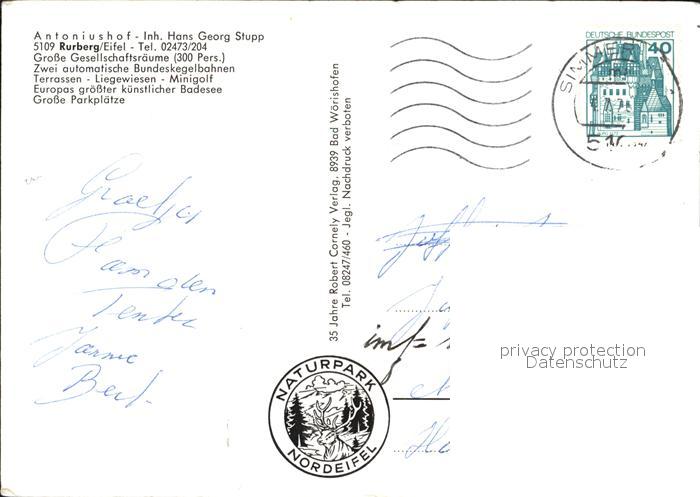 Antoniushof - Inh. Hans Georg Stupp
5109 Rurberg/Eifel - Tel. 02473/204
Große Gesellschaftsräume (300 Pers.)
Zwei automatische Bundeskegelbahnen
Terrassen - Liegewiesen - Minigolf
Europas größter künstlicher Badesee
Große Parkplätze
DEUTSCHE BUNDESPOST
40
SIMMER
35 Jahre Robert Cornely Verlag, 8939 Bad Wörishofen
Tel. 08247/460 - Jegl. Nachdruck verboten
Groetjes
van den
Janne
Bert
NATURPARK
NORDEIFEL
privacy protection
Datenschutz